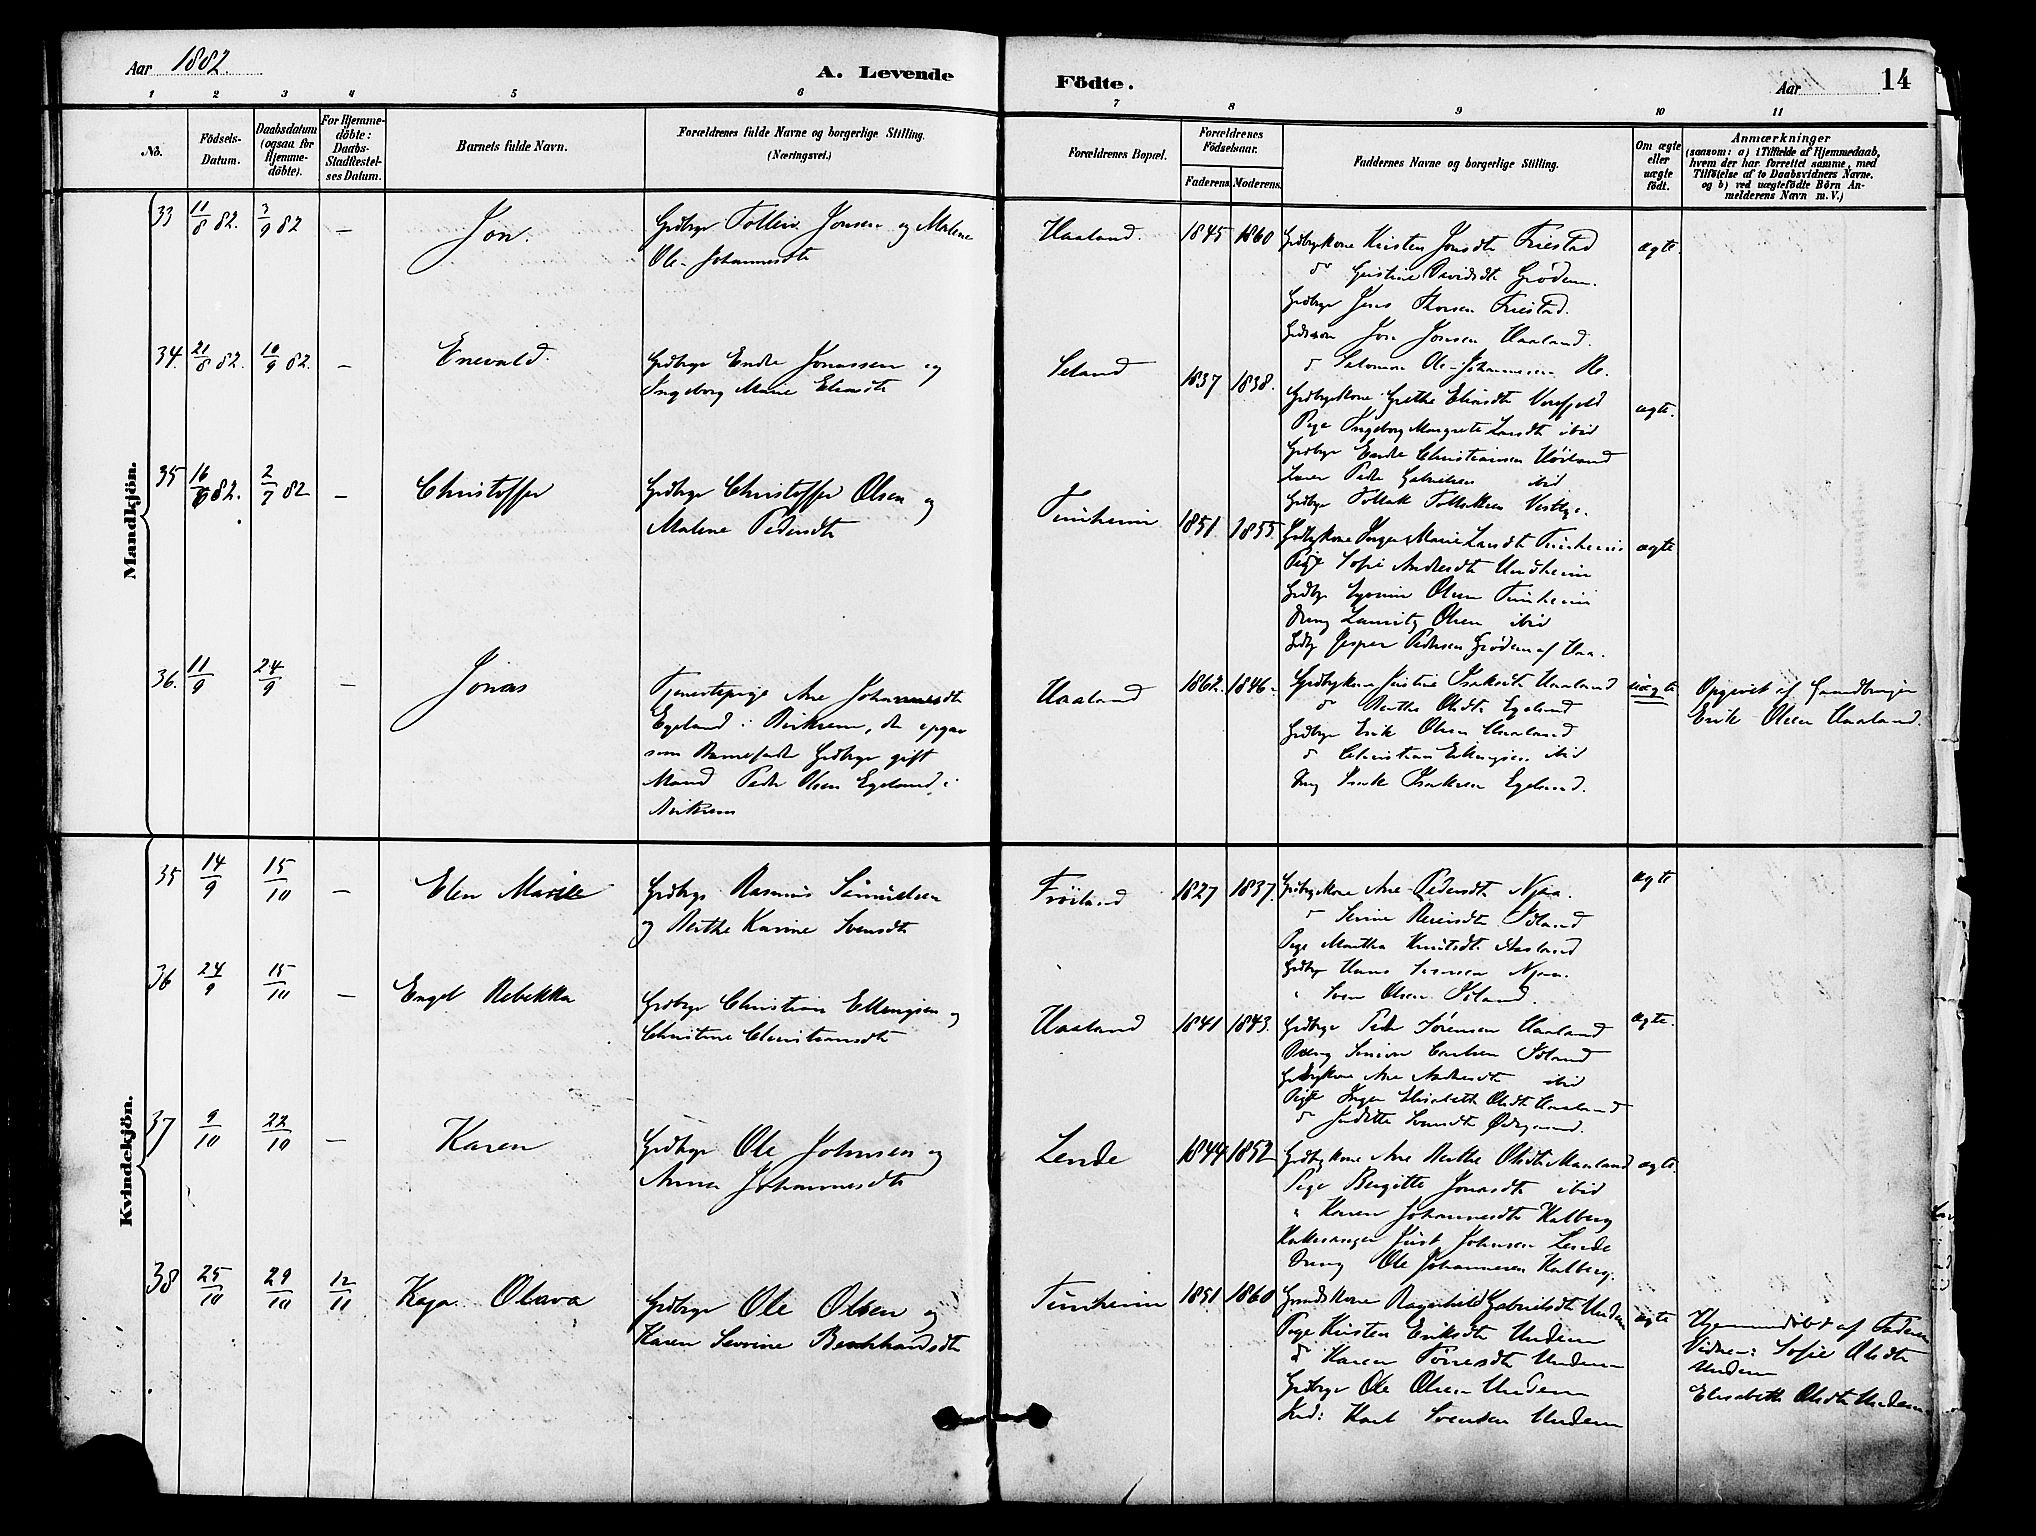 Aar 1882.
A. Levende
Födte.
Aar
14
1 2 3 4 5 6 7 8 9 10 11
No.
Födsels-Datum.
Daabsdatum (ogsaa for Hjemme-döbte).
For Hjemme-döbte: Daabs-Stadfestel-ses Datum.
Barnets fulde Navn.
Forældrenes fulde Navne og borgerlige Stilling. (Næringsvei.)
Forældrenes Bopæl.
Forældrenes Födselsaar.
Faderens. Moderens.
Faddernes Navne og borgerlige Stilling.
Om ægte eller uægte födt.
Anmærkninger
(saasom: a) i Tilfælde af Hjemmedaab, hvem der har forrettet samme, med Tilföielse af to Daabsvidners Navne. og b) ved uægtefödte Börn An-melderens Navn m. V.)
Mandkjön.
33 11/8 82. 3/9 82 — Jon. Grdbrgr Tollein Jonsen og Malene
Ole-Johannesdtr
Haaland. 1845 1860
Grdbrgkone Kirsten Jonsdtr Friestad
do Gristine Davidsdtr Grödem.
Grdbrgr Jens Thorsen Friestad.
Grdmn Jon Jonsen Haaland.
do Salomon Ole-Johannesen Re.
ægte.
34. 21/8 82. 10/9 82. — Enevald. Grdbrgr Endre Jonassen og
Ingeborg Marie Eliasdtr
Seland 1837 1838.
Grdbrgkone Grethe Eliasdtr
Pige Ingeborg Margrete Larsdtr ibid
Grdbrgr Endre Christiansen Höiland
Peder Gabrielsen ibid
Grdbrgr Tollak Tollaksen
ægte.
35 16/6 82. 2/7 82 — Christoffer Grdbrgr Christoffer Olsen og
Malene Pedersdtr
Tunheim 1851. 1855.
Grdbrgkone Inger Marie Larsdtr Tunheim
Pige Sofie Andresdtr Undheim
Grdbrgr Olsen Tunheim
Dreng Lauritz Olsen ibid
Grdbrgr Jesper Pedersen Grödem af Haa.
ægte
36. 11/9 24/9 — Jonas Tjenestepige Ane Johannesdtr
Egeland i Birkrem, der opgav
som Barnefader Grdbrgr gift
Mand Peder Olsen Egeland i
Birkrem
Haaland 1862. 1846.
Grdbrgkone Justine Isaksdtr Haaland
do Berthe Olsdtr Egeland
Grdbrgr Erik Olsen Haaland
do Christian Ellingsen ibid
Dreng Isak Isaksen Egeland.
uægte
Opgivet af Gaardbruger
Erik Olsen Haaland.
Kvindekjön.
35 14/9 15/10 — Elen Marie Grdbrgr Rasmus Samuelsen
og Berthe Karine Svensdtr
Fröiland 1827 1837.
Grdbrgkone Ane Pedersdtr Njaa.
do Serine Reiersdtr Idland
Pige Martha Knutsdtr Aasland
Grdbrgr Hans Svensen Njaa.
" Sven Olsen Idland.
ægte
36 24/9 15/10 — Engel Rebekka Grdbrgr Christian Ellingsen og
Christine Christiansdtr
Haaland 1841 1843.
Grdbrgr Peder Sörensen Haaland
Dreng Simon Carlsen Idland
Grdbrgkone Ane Andresdtr ibid
Pige Inger Elisabeth Olsdtr Haaland
do Juditte Svensdtr Ødegaard.
ægte.
37 9/10 22/10 — Karen Grdbrgr Ole Johnsen og
Anna Johannesdtr
Lende 1844 1852
Grdbrgkone Ane Berthe Olsdtr Maaland
Pige Bergitte Jonasdtr ibid
" Karen Johannesdtr Kalberg
Kirkesanger Just Johnsen Lende
Dreng Ole Johannesen Kalberg.
ægte
38 25/10 29/10 12/11 Kaja Olava Grdbrgr Ole Olsen og
Karen Severine Bernhardsdtr
Tunheim 1851 1860
Grmdskone Ragnhild Gabrielsdtr Undem
Pige Kirsten Eriksdtr Undem
do Karen Törresdtr Undem
Grdbrgr Ole Olsen Undem
Ind: Karl Svendsen Undem
ægte
Hjemmedöbt af Faderen
Vidner: Sofie Olsdtr
Undem
Elisabeth Olsdtr Undem